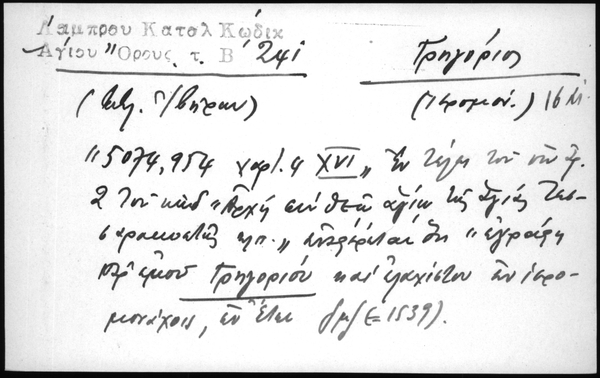 Λάμπρου Κατολ Κώδικ
Αγίου Όρους τ. Β΄ 241
Γρηγόριος
(Μ. Ἰβήρων)
(Ἱερομον.) 16 αἰ.
"5074, 954 χαρτ. 4 XVI" Ἐν τέλει τοῦ ὑπ' ἀρ.
2 τοῦ κώδ "Ἀρχὴ σὺν Θεῷ ἁγίῳ τῆς ἁγίας Τεσ-
σαρακοστῆς κλπ." ἀναφέρεται ὅτι "ἐγράφη
παρ' ἐμοῦ Γρηγορίου καὶ ἐλαχίστου ἐν ἱερο-
μονάχοις, ἐν ἔτει ζμζ (= 1539).